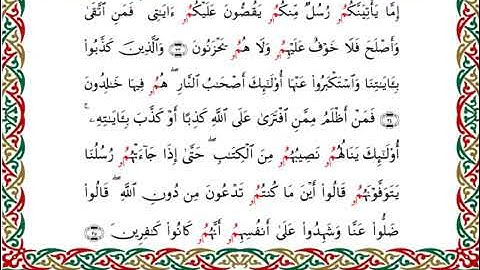 إِمَّا يَأْتِيَنَّكُمُۥ رُسُلٌ مِّنكُمُۥ يَقُصُّونَ عَلَيْكُمُۥ ءَايَٰتِى فَمَنِ ٱتَّقَىٰ
وَأَصْلَحَ فَلَا خَوْفٌ عَلَيْهِمُۥ وَلَا هُمُۥ يَحْزَنُونَ وَٱلَّذِينَ كَذَّبُوا۟
بِـَٔايَٰتِنَا وَٱسْتَكْبَرُوا۟ عَنْهَا أُو۟لَٰٓئِكَ أَصْحَٰبُ ٱلنَّارِ هُمُۥ فِيهَا خَٰلِدُونَ
فَمَنْ أَظْلَمُ مِمَّنِ ٱفْتَرَىٰ عَلَى ٱللَّهِ كَذِبًا أَوْ كَذَّبَ بِـَٔايَٰتِهِۦ
أُو۟لَٰٓئِكَ يَنَالُهُمُۥ نَصِيبُهُمُۥ مِنَ ٱلْكِتَٰبِ حَتَّىٰ إِذَا جَآءَتْهُمُۥ رُسُلُنَا
يَتَوَفَّوْنَهُمُۥ قَالُوا۟ أَيْنَ مَا كُنتُمُۥ تَدْعُونَ مِن دُونِ ٱللَّهِ قَالُوا۟
ضَلُّوا۟ عَنَّا وَشَهِدُوا۟ عَلَىٰ أَنفُسِهِمُۥ أَنَّهُمُۥ كَانُوا۟ كَٰفِرِينَ